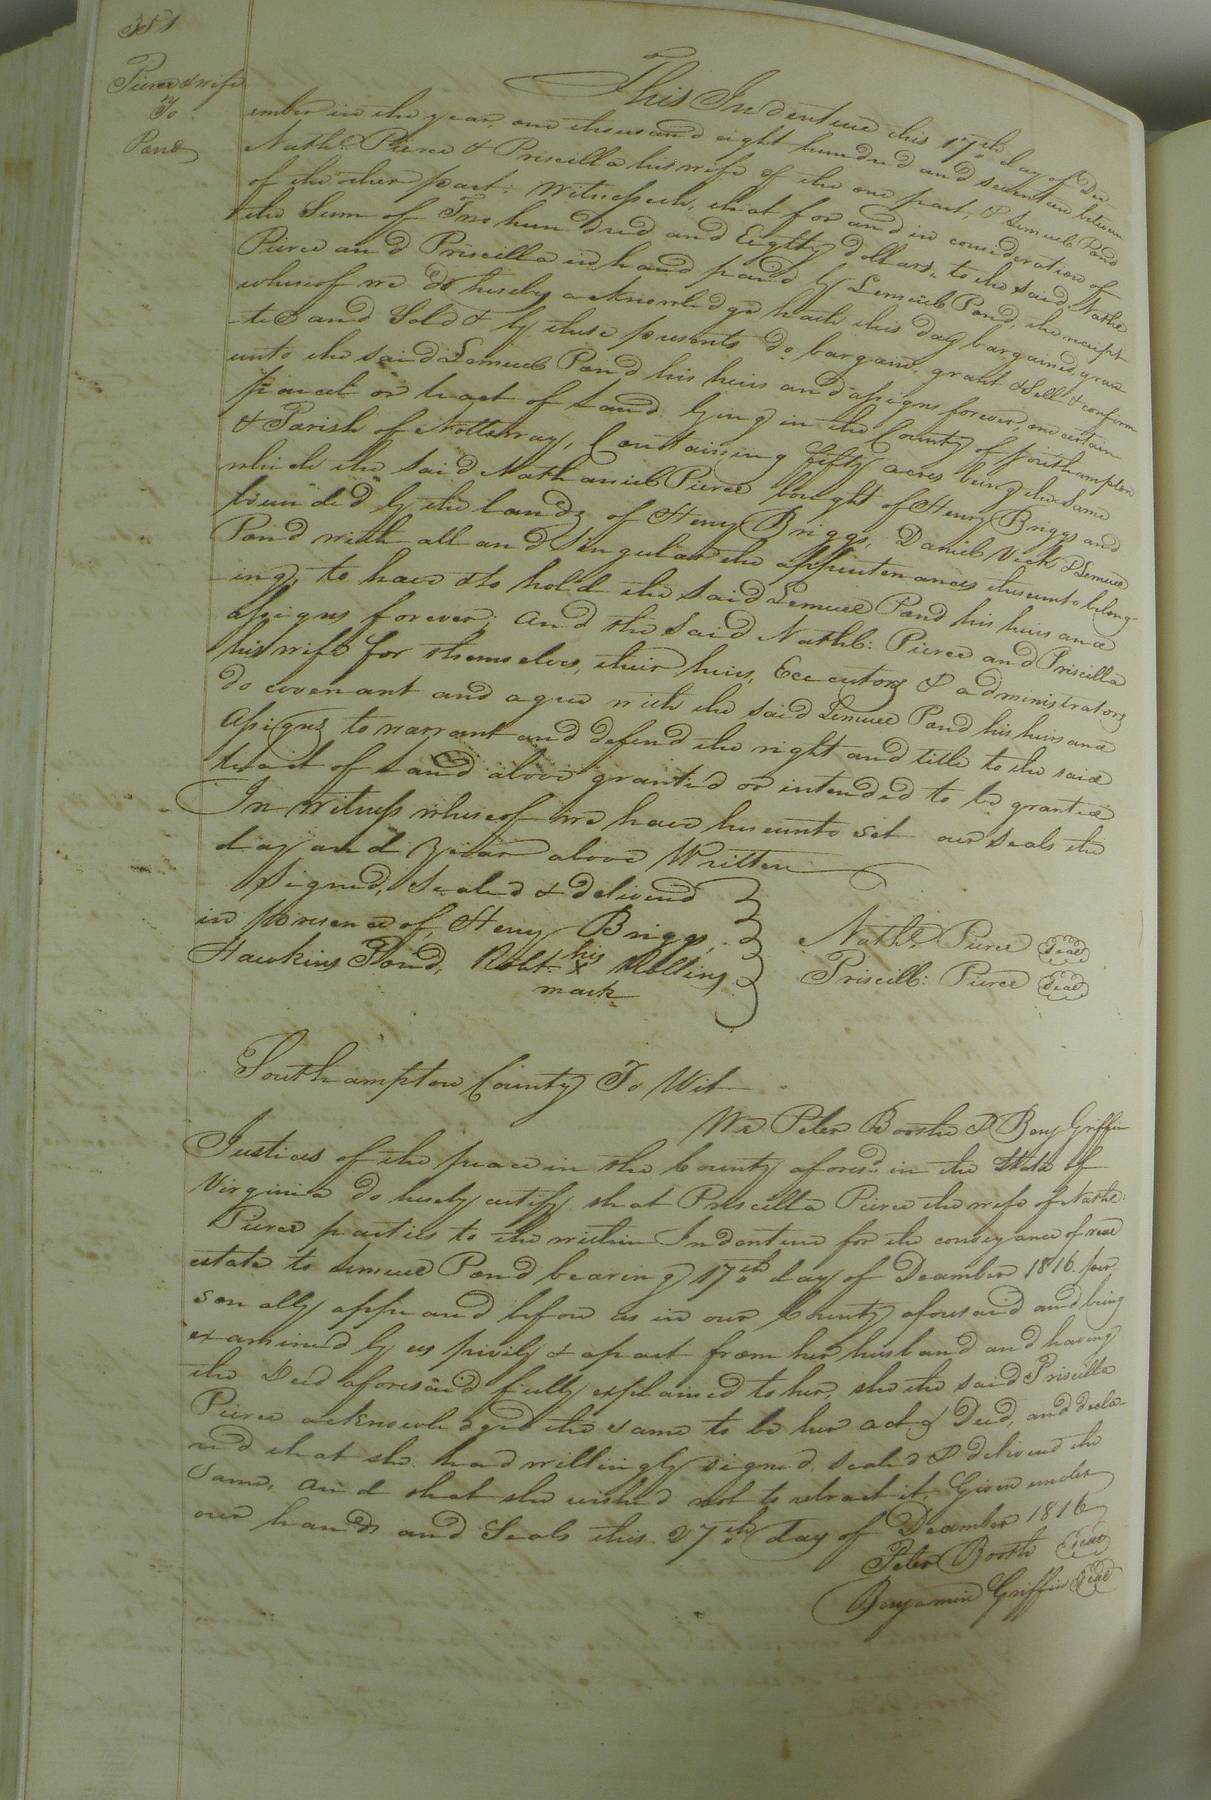 381
Pierce & wife
To
Pond
This Indenture this 17th day of Dec
ember in the year, one thousand eight hundred and sixteen between
Nathl. Pierce & Priscilla his wife of the one part, & Lemuel Pond
of the other part: Witnesseth, that for and in consideration of
the Sum of Two hundred and Eighty dollars, to the said Nathl
Pierce and Priscilla in hand paid by Lemuel Pond, the receipt
whereof we do hereby acknowledge hath this day bargained, gran
-ted and Sold & by these presents do bargain, grant & Sell & confirm
unto the said Lemuel Pond his heirs and assigns forever, one certain
parcel or tract of Land lying in the County of Southampton
& Parish of Nottoway, Containing fifty acres being the Same
which the said Nathaniel Pierce bought of Henry Briggs and
bounded by the lands of Henry Briggs, Daniel Vick & Lemuel
Pond with all and Singular the appurtenances thereunto belong-
ing, to have & to hold the said Lemuel Pond his heirs and
assigns forever; and the said Nathl: Pierce and Priscilla
his wife for themselves, their heirs, Executors & administrators
do covenant and agree with the said Lemuel Pond his heirs and
assigns to warrant and defend the right and title to the said
tract of Land above granted or intended to be granted
In Witness whereof we have hereunto set our seals the
day and year above Written
Signed, Sealed & delivered
in presence of, Henry Briggs, Nathl. Pierce Seal
Hawkins Pond, Robt. his x Rollings Priscill: Pierce Seal
mark
Southampton County To Wit
We Peter Booth & Benj Griffin
Justices of the peace in the County aforesd. in the State of
Virginia do hereby certify that Priscilla Pierce the wife of Nathl:
Pierce parties to the within Indenture for the conveyance of real
estate to Lemuel Pond bearing 17th day of December 1816. per-
sonally appeared before us in our County aforesaid and being
examined by us privily & apart from her husband and having
the Deed aforesaid fully explained to her, she the said Priscilla
Pierce acknowledged the same to be her act & Deed, and decla-
red that she had willingly signed, sealed & delivered the
same, and that she wished not to retract it. Given under
our hands and Seals this 27th day of December 1816
Peter Booth Seal
Benjamin Griffin Seal